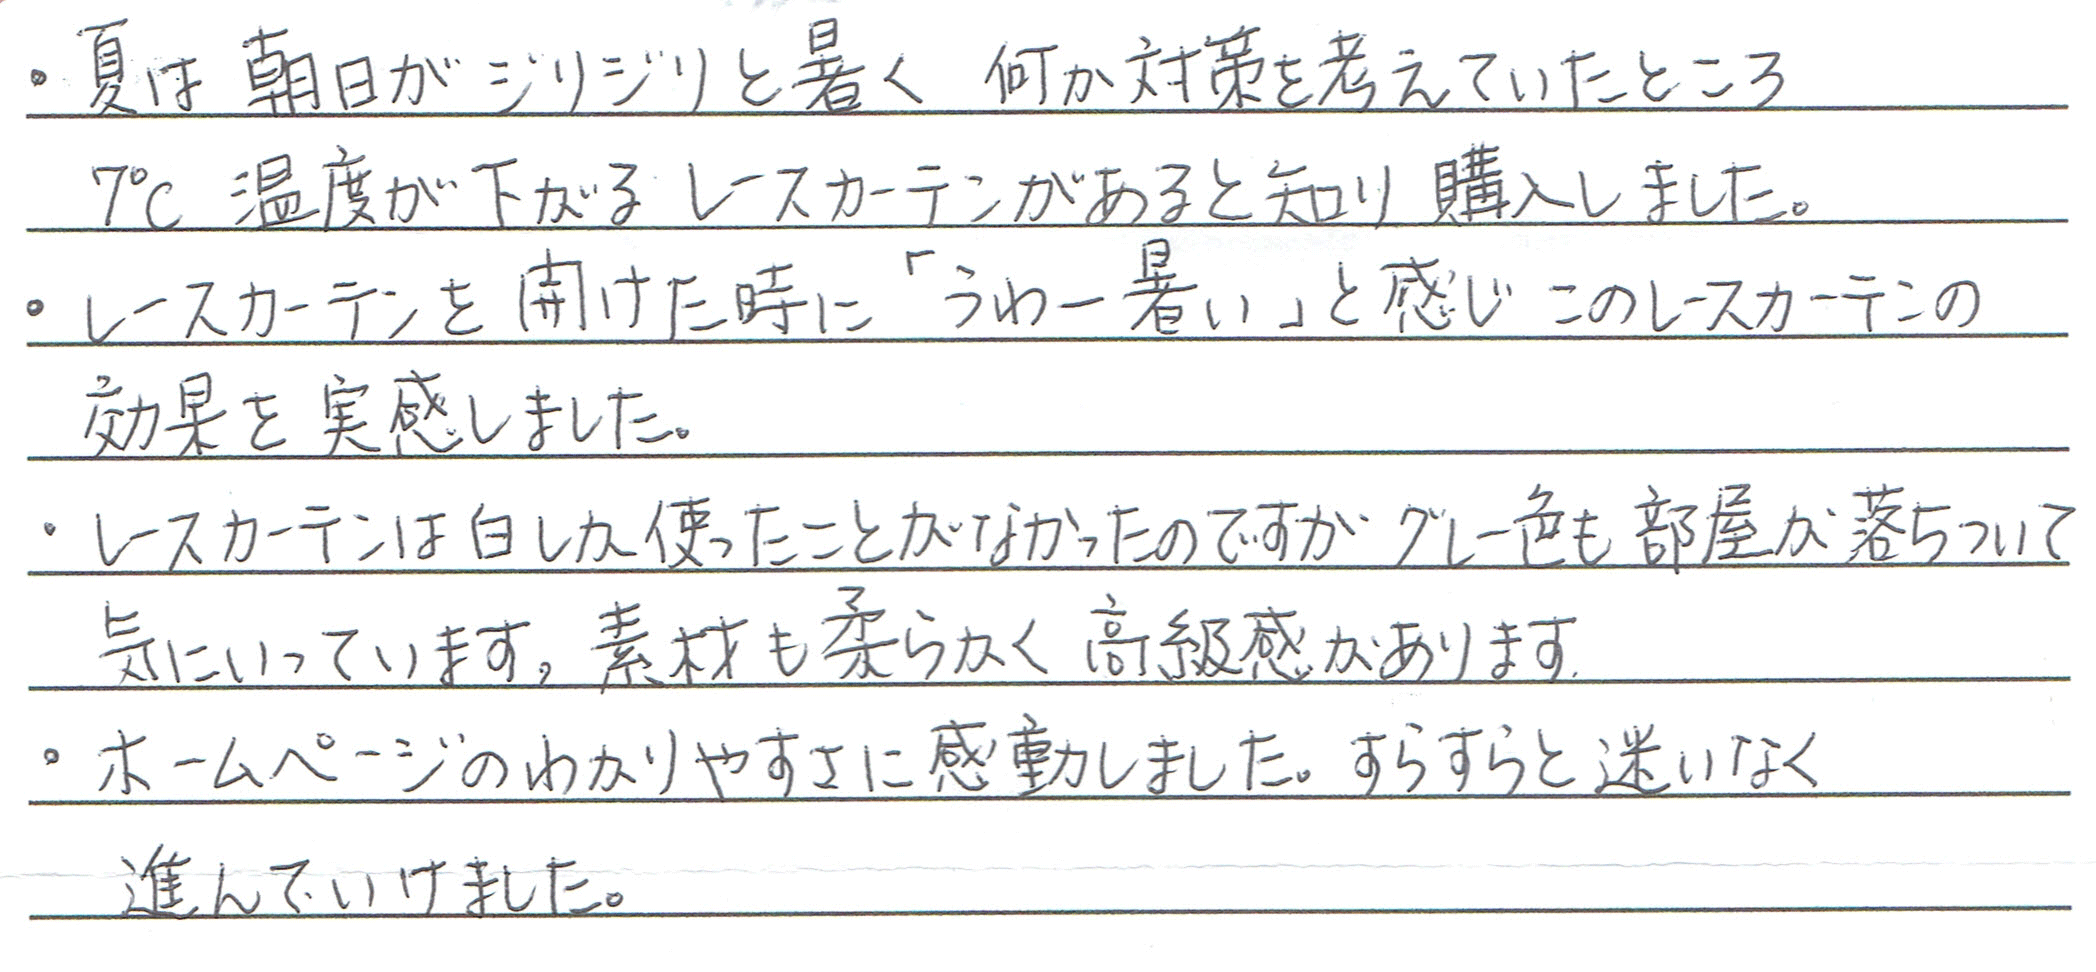 ・夏は 朝日が ジリジリと暑く 何か対策を考えていたところ
7℃ 温度が下がる レースカーテンがあると知り 購入しました。
・レースカーテンを 開けた時に「うわー暑い」と感じ このレースカーテンの
効果を 実感しました。
・レースカーテンは白しか使ったことがなかったのですが グレー色も部屋が落ちついて
気にいっています。素材も柔らかく 高級感があります。
・ホームページのわかりやすさに感動しました。すらすらと迷いなく
進んでいけました。